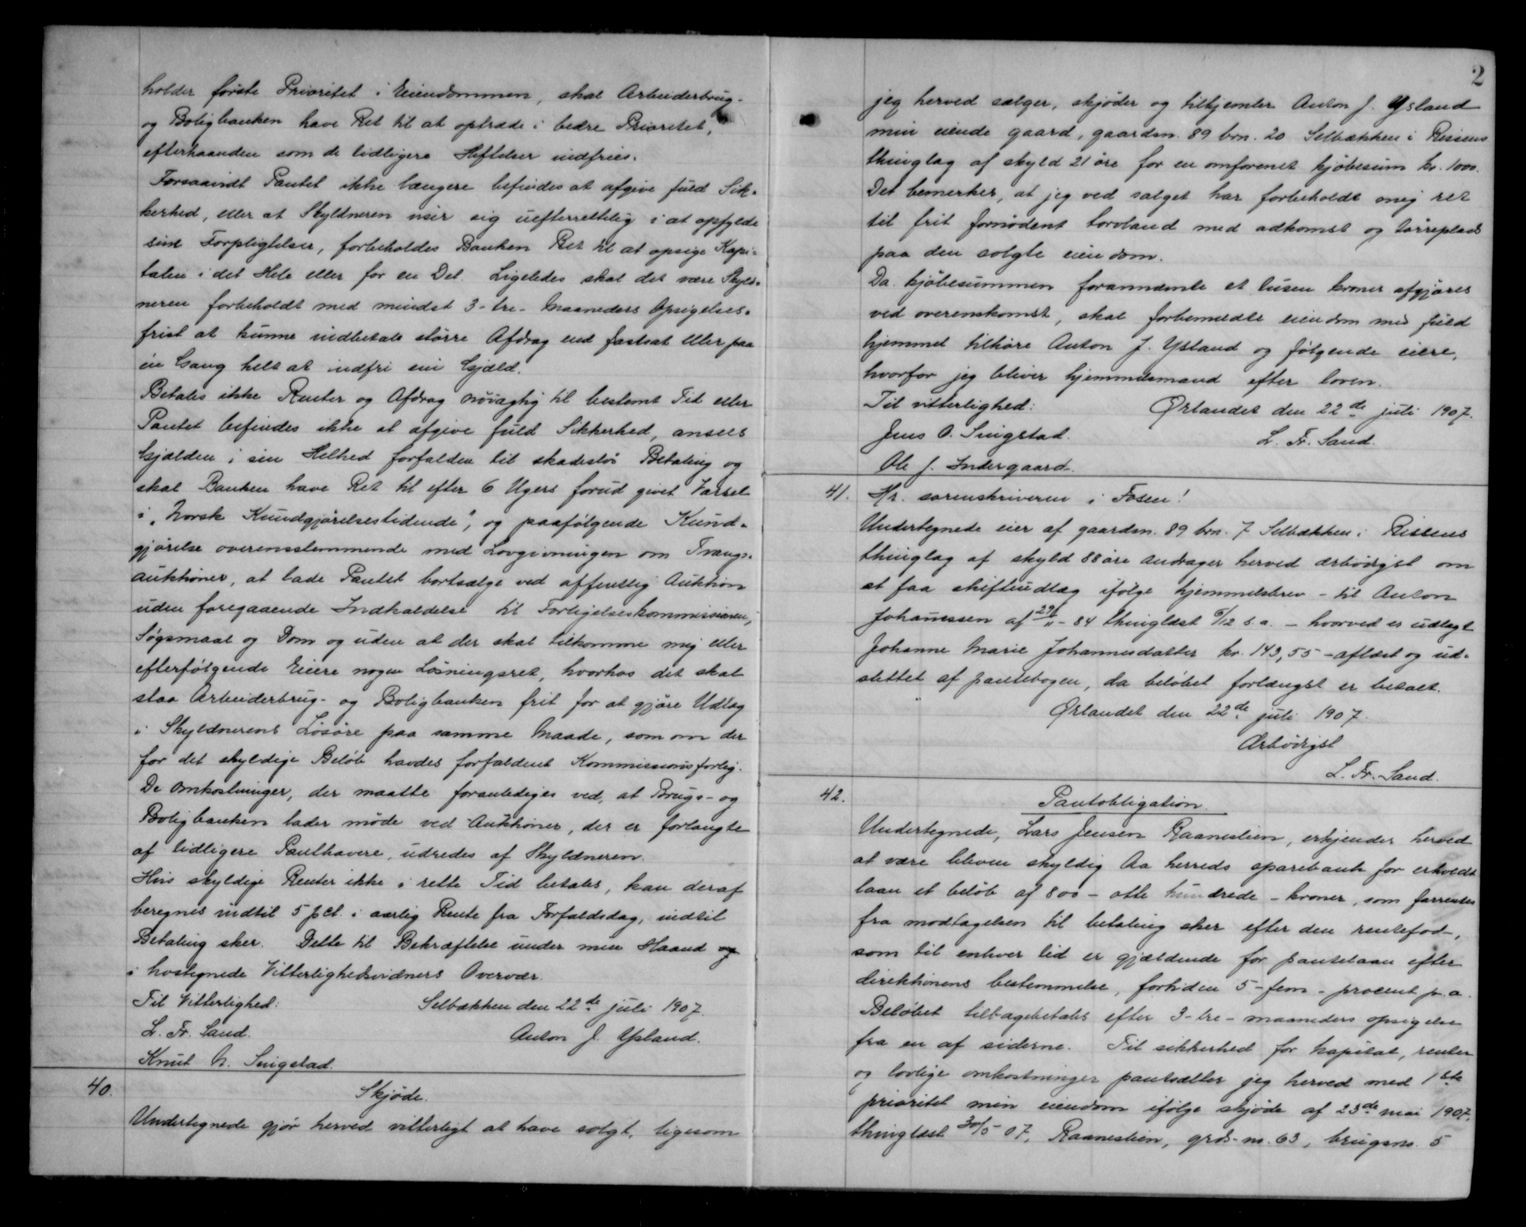 holder første Prioritet i Eiendommen, skal Arbeiderbrug-
og Boligbanken have Ret til at optræde i bedre Prioritet,
efterhaanden som de tidligere Heftelser indfries.
Forsaavidt Pantet ikke længere befindes at afgive fuld Sik-
kerhed, eller at Skyldneren viser sig uefterrettelig i at opfylde
sine Forpligtelser, forbeholdes Banken Ret til at opsige Kapi-
talen i det Hele eller for en Del. Ligeledes skal det være Skyld-
neren forbeholdt med mindst 3-tre- Maaneders Opsigelses-
frist at kunne indbetale større Afdrag end fastsat eller paa
én Gang helt at indfri sin Gjæld.
Betales ikke Renter og Afdrag nøiagtig til bestemt Tid eller
Pantet befindes ikke at afgive fuld Sikkerhed, ansees
Gjælden i sin Helhed forfalden til skadesløs Betaling og
skal Banken have Ret til efter 6 Ugers forud givet Varsel
i "Norsk Kundgjørelsestidende", og paafølgende Kund-
gjørelse overensstemmende med Lovgivningen om Tvangs-
auktioner, at lade Pantet bortsælge ved offentlig Auktion
uden foregaaende Indkaldelse til Forligelseskommissionen,
Søgsmaal og Dom og uden at der skal tilkomme mig eller
efterfølgende Eiere nogen Løsningsret, hvorhos det skal
staa Arbeiderbrug- og Boligbanken frit for at gjøre Udlæg
i Skyldnerens Løsøre paa samme Maade, som om der
for det skyldige Beløb havdes forfaldent Kommissionsforlig.
De Omkostninger, der maatte foranlediges ved, at Brugs- og
Boligbanken lader møde ved Auktioner, der er forlangte
af tidligere Panthavere, udredes af Skyldneren.
Hvis skyldige Renter ikke i rette Tid betales, kan deraf
beregnes indtil 5 pct. i aarlig Rente fra Forfaldsdag, indtil
Betaling sker. Dette til Bekræftelse under min Haand og
i hostegnede Vitterlighedsvidners Overvær.
Til Vitterlighed: Selbækken den 22de juli 1907.
L. Fr. Sand. Anton J. Ysland.
Knut N. Singstad.
40. Skjøde.
Undertegnede gjør herved vitterligt at have solgt, ligesom
2
jeg herved sælger, skjøder og tilkjender Anton J. Ysland
min eiende gaard, gaardsn. 89 brn. 20 Selbækken i Rissens
thinglag af skyld 21 øre for en omforenet kjøbesum kr. 1000.
Det bemerkes, at jeg ved salget har forbeholdt mig ret
til frit fornødent torvland med adkomst og tørreplads
paa den solgte eiendom.
Da kjøbesummen forannævnte et tusen kroner afgjøres
ved overenskomst, skal forbemeldte eiendom med fuld
hjemmel tilhøre Anton J. Ysland og følgende eiere,
hvorfor jeg bliver hjemmelsmand efter loven.
Til vitterlighed: Ørlandet den 22de juli 1907.
Jens O. Singstad. L. Fr. Sand.
Ole J. Indergaard.
41. Hr. sorenskriveren i Fosen!
Undertegnede eier af gaardsn. 89 brn. 7 Selbækken i Rissens
thinglag af skyld 88 øre andrager herved ærbødigst om
at faa skifteudlæg ifølge hjemmelsbrev - til Anton
Johannessen af 29/11 - 84 thinglæst 6/12 s.a. - hvorved er udlagt
Johanne Marie Johannesdatter kr. 143,55 - aflæst og ud-
slettet af pantebogen, da beløbet forlængst er betalt.
Ørlandet den 22de juli 1907.
Ærbødigst
L. Fr. Sand.
42. Pantobligation.
Undertegnede, Lars Jensen Raanestien, erkjender herved
at være bleven skyldig Aa herreds sparebank for erholdt
laan et beløb af 800 - otte hundrede - kroner, som forrentes
fra modtagelsen til betaling sker efter den rentefod,
som til enhver tid er gjældende for pantelaan efter
direktionens bestemmelse, fortiden 5-fem - procent p.a.
Beløbet tilbagebetales efter 3-tre - maaneders opsigelse
fra en af siderne. Til sikkerhed for kapital, renter
og lovlige omkostninger pantsætter jeg herved med 1ste
prioritet min eiendom ifølge skjøde af 23de mai 1907,
thinglæst 30/5 07, Raanestien, grds-no. 63, brugsno. 5